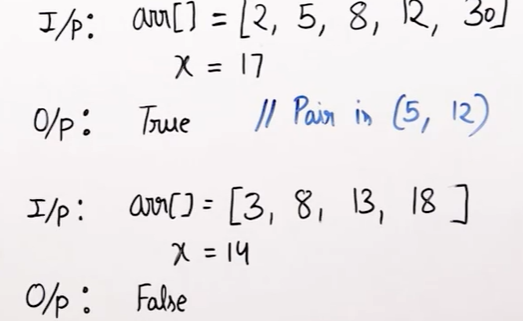 I/p: arr[] = [2, 5, 8, 12, 30]
x = 17
O/p: True // Pair is (5, 12)
I/p: arr[] = [3, 8, 13, 18 ]
x = 14
O/p: False